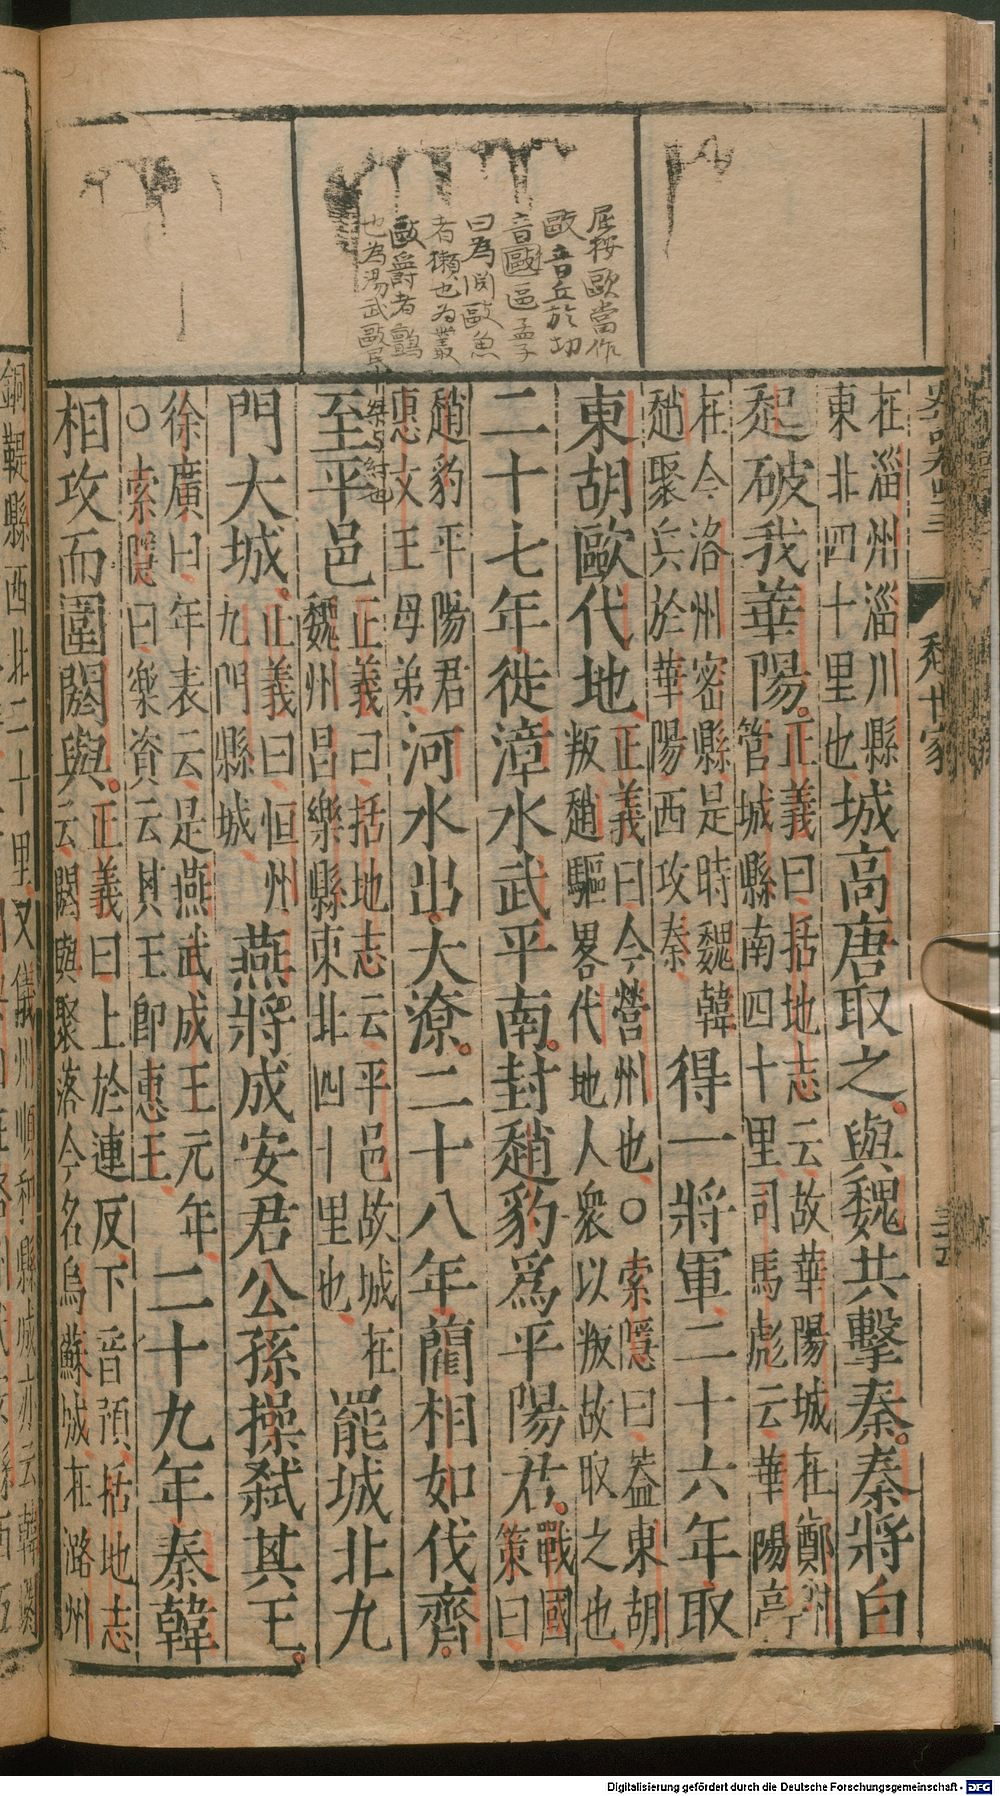 屈桉歐當作
歐音丘於切
音毆區孟子
曰為渕歐魚
者獺也为叢
歐爵者鸇
也為湯武歐民
桀与紂也
史記卷四十三
趙世家
三十五
在淄州淄川縣
東北四十里也
城高唐取之與魏共擊秦秦將白
起破我華陽
正義曰括地志云故華陽城在鄭州
管城縣南四十里司馬彪云華陽亭
在今洛州密縣是時魏韓
趙聚兵於華陽西攻秦
得一將軍二十六年取
東胡歐代地
正義曰今營州也○索隱曰蓋東胡
叛趙驅畧代地人衆以叛故取之也
二十七年徙漳水武平南封趙豹爲平陽君
戰國
策曰
趙豹平陽君
惠文王母弟
河水出大潦二十八年藺相如伐齊
至平邑
正義曰括地志云平邑故城在
魏州昌樂縣東北四十里也
罷城北九
門大城
正義曰恒州
九門縣城
燕將成安君公孫操弑其王
徐廣曰年表云是燕武成王元年
○索隱曰樂資云其王即惠王
二十九年秦韓
相攻而圍閼與
正義曰上於連反下音預括地志
云閼與聚落今名烏蘇城在潞州
銅鞮縣西北二十里又儀州順和縣城亦云韓
Digitalisierung gefördert durch die Deutsche Forschungsgemeinschaft - DFG